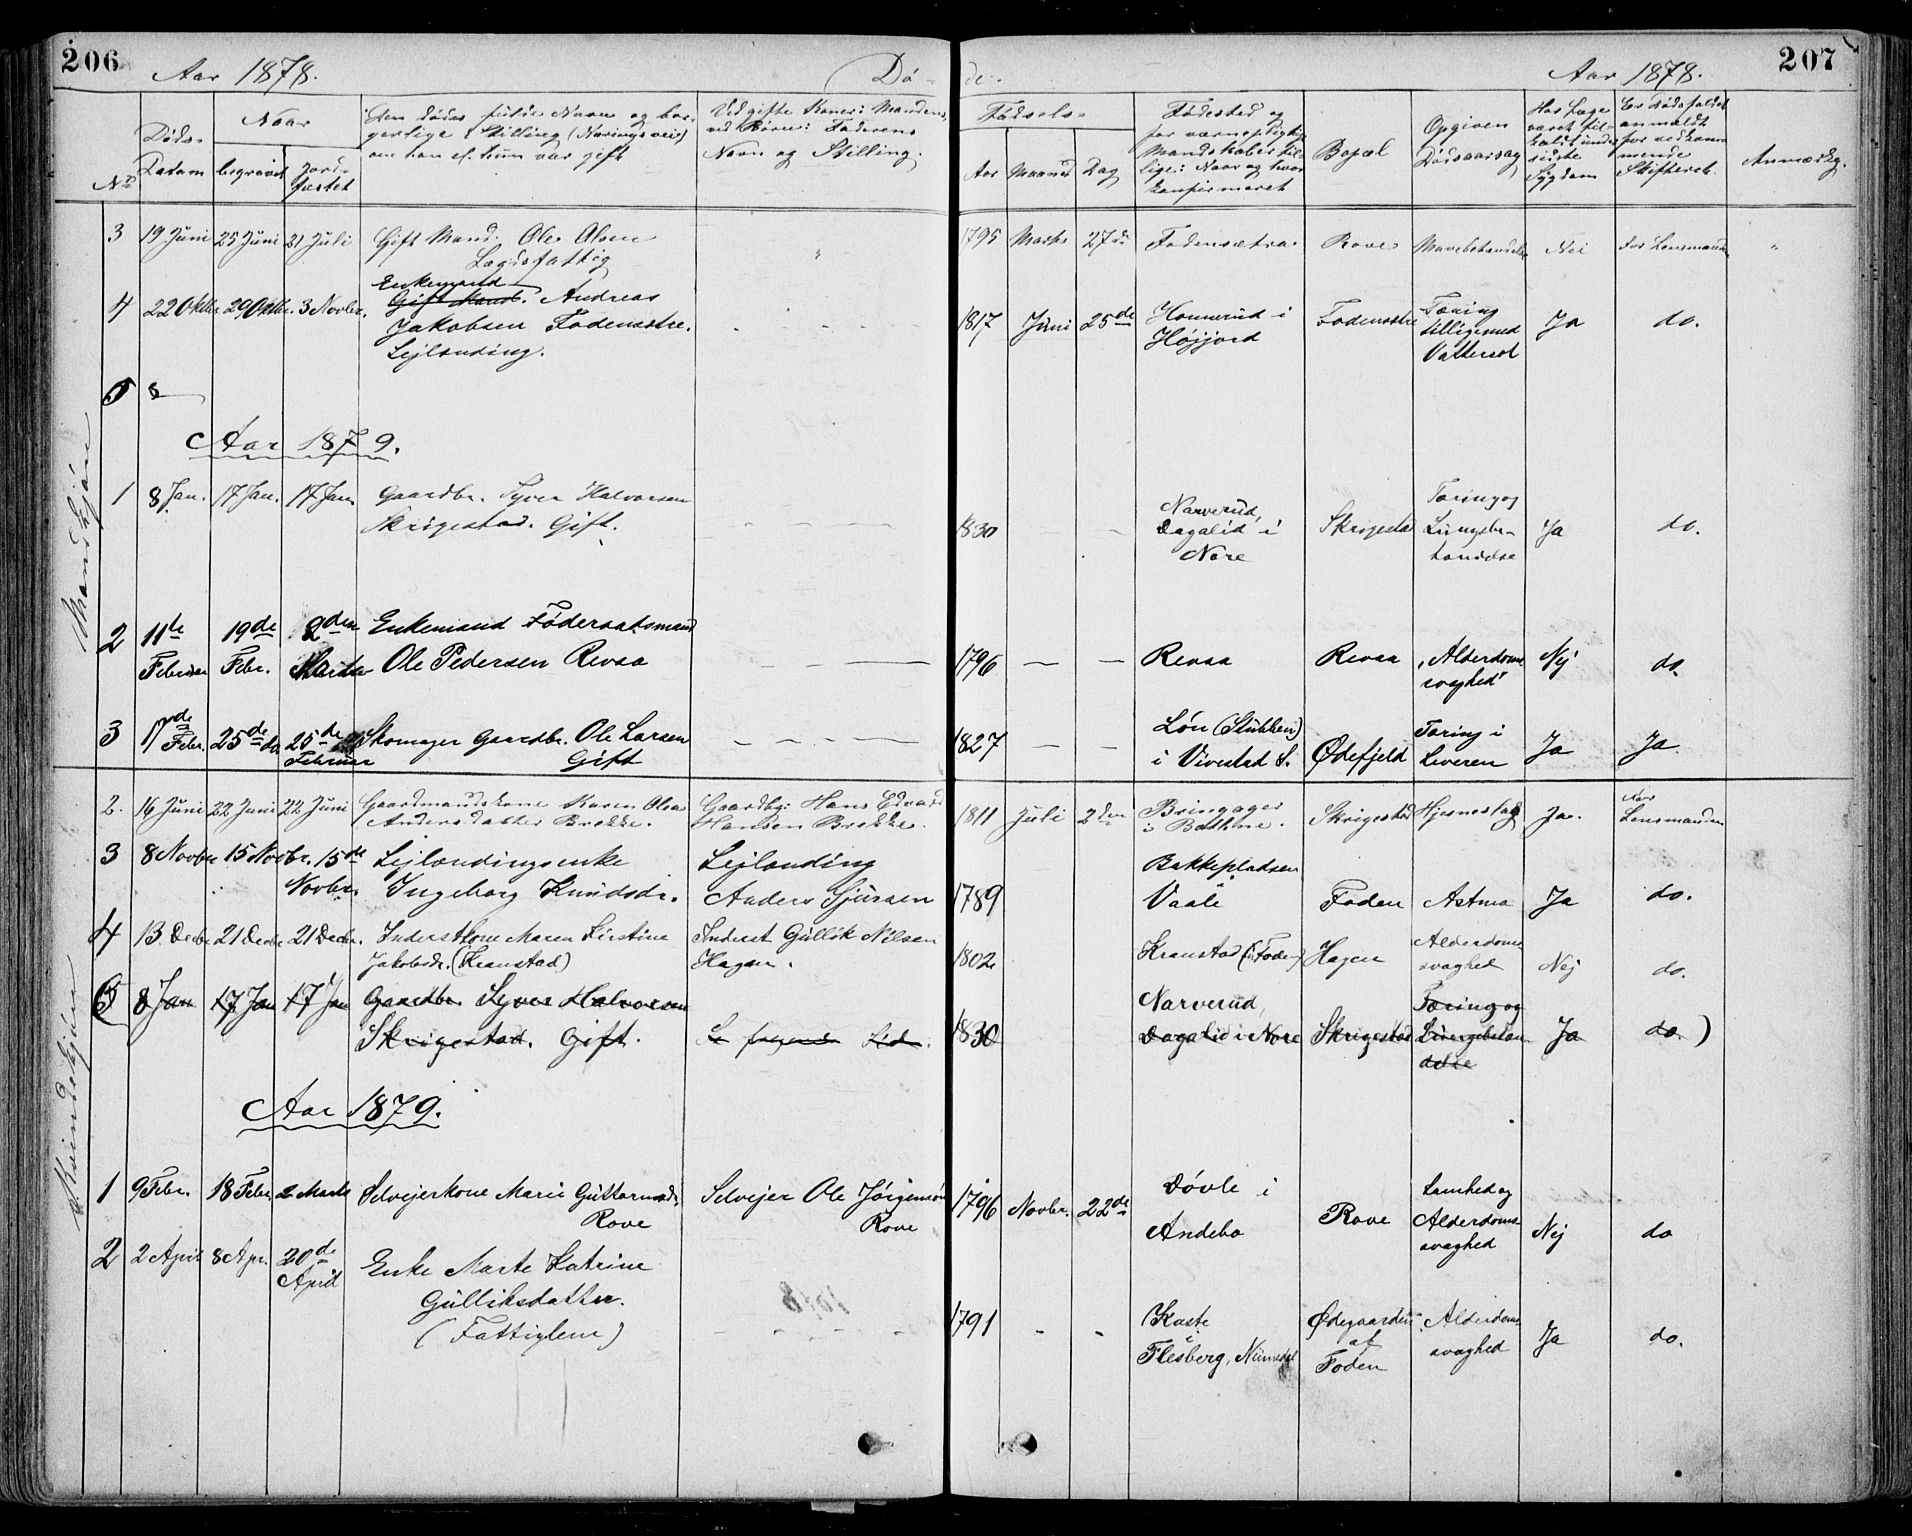 206
Aar 1878.
Dø-
de.
Aar 1878.
207
No
Døds-
Datum
Naar
begravet
Jord-
fæstet
Den dødes fulde Navn og bor-
gerlige Stilling (Næringsvei)
om han el. hun var gift
Ved gifte Koner: Mandens,
ved Børn: Faderens
Navn og Stilling.
Fødsels-
Aar
Maaned
Dag
Fødested og
for værnepligtige
Mandskaber til-
lige: Naar og hvor
konfirmeret
Bopæl
Opgiven
Dødsaarsag
Har Læge
været til-
kaldt under
sidste
Sygdom
Er Dødsfaldet
anmeldt
for vedkom-
mende
Skifteret.
Anmærkg.
Mandkjøn
3 19 Juni 25 Juni 21 Juli Gift Mand. Ole Olsen " 1795 Marts 27de Fodensætra Rove Nei for Lensmanden "
Lægdsfattig
Enkemand
4 22 Oktbr. 29 Oktbr. 3 Novbr. Gift Mand. Andreas
Jakobsen Fodensætre.
Lejlænding.
1817 Juni 25de Honnerud i
Høijord
Fodensætre
Tæring
tilligemed
Vattersot
Ja do.
5 8
Aar 1879.
1 8 Jan. 17 Jan. 17 Jan Gaardbr. Syver Halvorsen
Skrigestad. Gift.
1830 – – Narverud,
Dagalid i
Nore
Skrigestad
Tæring og
Lungebe-
tændelse
Ja do.
2 11te
Februar
19de
Febr.
2den
Marts
Enkemand Føderaadsmand
Ole Pedersen Revaa
1796 – – Revaa Revaa "Alderdoms
svaghed"
Nej do.
3 17de
Febr.
25de do.
25de
Februar
Skomager Gaardbr. Ole Larsen
Gift
1827 – – Løn (Stubben)
i Vivestad S.
Ødefjeld
Tæring i
Leveren
Ja Ja
Kvindekjøn
2. 16 Juni 22 Juni 22 Juni Gaardmandskone Karen Olea
Andersdatter Brekke.
Gaardbg: Hans Edvard
Hansen Brekke.
1811 Juli 2den Bringager
i Bothne.
Skrigestad Hjerneslag Ja. for
Lensmanden
3 8 Novbr 15 Novbr. 15de
Novbr.
Lejlændingsenke
Ingeborg Knudsdr.
Lejlænding
Anders Sjursen
1789 Bakkepladsen
i
Vaale
Foden Astma Ja do.
4 13 Decbr 21 Decbr 21 Decbr. Inderstkone Maren Kirstine
Jakobsdr. (Kranstad)
Inderst Gullik Nilsen
Hagen.
1802 Kranstad (i Foden) Hagen Alderdoms
svaghed
Nej do.
(5 8 Jan 17 Jan 17 Jan Gaardbr. Syver Halvorsen
Skrigestad. Gift.
Se følgende Side.
1830 Narverud,
Dagalid i Nore
Skrigestad
Tæring og
Lungebetæn
delse
Ja do. )
Aar 1879.
1 9 Febr. 18 Febr. 2 Marts Selvejerkone Marie Guttormsdr.
Rove
Selvejer Ole Jørgensøn
Rove
1796 Novbr. 22de Døvle i
Andebo
Rove
Lamhed og
Alderdoms-
svaghed
Nej do
2 2 April 8 Apr. 20de
April
Enke Marte Katrine
Gulliksdatter.
(Fattiglem)
1791 - - Kaste
i
Flesberg, Numedal
Ødegaarden
af
Foden
Alderdoms-
svaghed
Ja do.